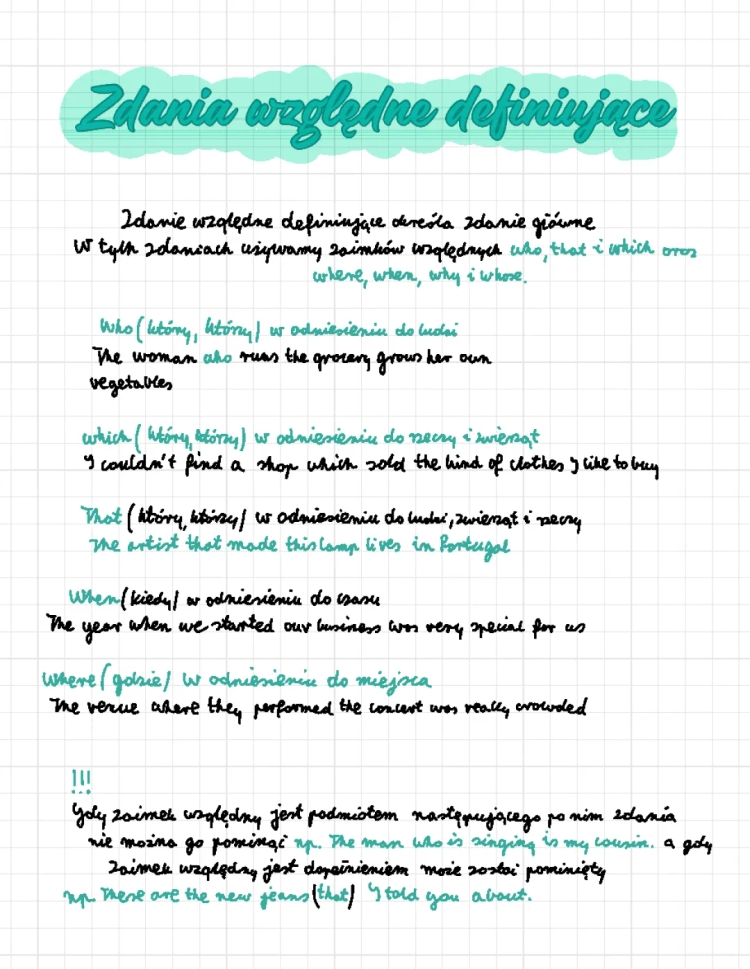 Zdania względne definiujące
Zdanie względne definiujące określa zdanie główne
W tych zdaniach używamy zaimków względnych who, that i which oraz
where, when, why i whose.
Who (który, którzy) w odniesieniu do ludzi
The woman who runs the grocery grows her own
vegetables
which (który, którzy) w odniesieniu do rzeczy i zwierząt
I couldn't find a shop which sold the kind of clothes I like to buy
That (który, którzy) w odniesieniu do ludzi, zwierząt i rzeczy
The artist that made this lamp lives in Portugal
When (kiedy) w odniesieniu do czasu
The year when we started our business was very special for us
Where (gdzie) w odniesieniu do miejsca
The venue where they performed the concert was really crowded
!!!
Gdy zaimek względny jest podmiotem następującego po nim zdania
nie można go pominąć np. The man who is singing is my cousin. a gdy
zaimek względny jest dopełnieniem może zostać pominięty
np. These are the new jeans (that) I told you about.